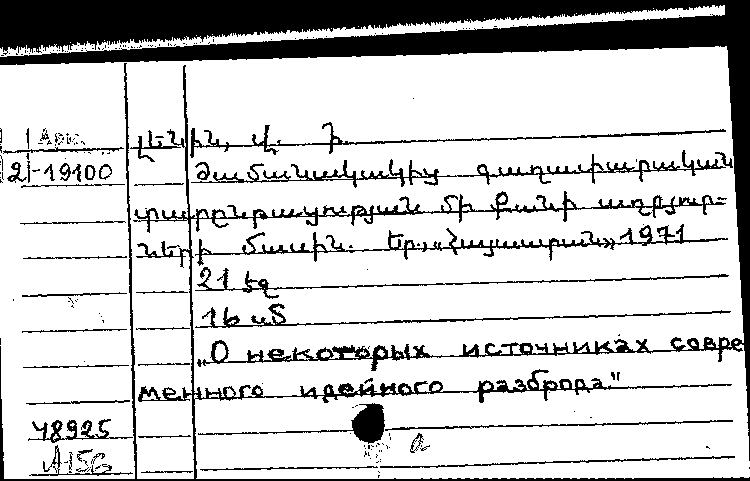 Арм. Լենին, Վ. Ի.
2-19100 Ժամանակակից գաղափարական
տարընթացության մի քանի աղբյուր-
ների մասին. Եր., «Հայաստան» 1971
21 էջ
16 սմ
„О некоторых источниках совре
менного идейного разброда."
48925
A156 a